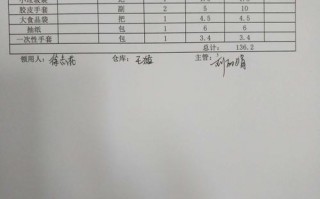 胶皮手套 副 2 5 10
大食品袋 把 1 4.5 4.5
抽纸 包 1 6 6
一次性手套 包 1 3.4 3.4
总计： 136.2
领用人： 仓库： 主管：